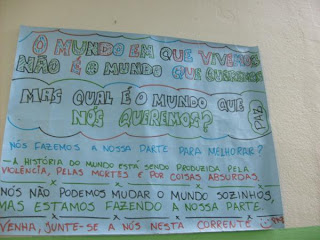 O MUNDO EM QUE VIVEMOS
NÃO É O MUNDO QUE QUEREMOS
MAS QUAL É O MUNDO QUE
NÓS QUEREMOS?
PAZ
NÓS FAZEMOS A NOSSA PARTE PARA MELHORAR?
- A HISTÓRIA DO MUNDO ESTÁ SENDO PRODUZIDA PELA
VIOLÊNCIA, PELAS MORTES E POR COISAS ABSURDAS.
x x x x
NÓS NÃO PODEMOS MUDAR O MUNDO SOZINHOS,
MAS ESTAMOS FAZENDO A NOSSA PARTE
x x x x
VENHA, JUNTE-SE A NÓS NESTA CORRENTE